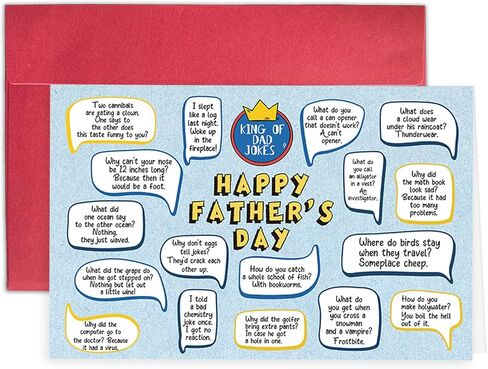 Two cannibals
are eating a clown.
One says to
the other does
this taste funny to you?
I slept
like a log
last night.
Woke up
in the
fireplace!
KING OF
DAD
JOKES
What do
you call a can opener
that doesn't work?
A can't
opener.
What does
a cloud wear
under his raincoat?
Thunderwear.
Why can't your nose
be 12 inches long?
Because then it
would be a foot.
HAPPY
FATHER'S
DAY
What do
you call
an alligator
in a vest?
An
investigator.
Why did
the math book
look sad?
Because it had
too many
problems.
What did
one ocean say
to the other ocean?
Nothing,
they just waved.
Why don't eggs
tell jokes?
They'd crack each
other up.
Where do birds stay
when they travel?
Someplace cheep.
What did the grape do
when he got stepped on?
Nothing but let out
a little wine!
How do you catch
a whole school of fish?
With bookworms.
I told
a bad
chemistry
joke once.
I got no
reaction.
What do
you get when
you cross a
snowman
and a vampire?
Frostbite.
How do you
make holywater?
You boil the hell
out of it.
Why did the
computer go to
the doctor? Because
it had a virus.
Why did the golfer
bring extra pants?
In case he got
a hole in one.